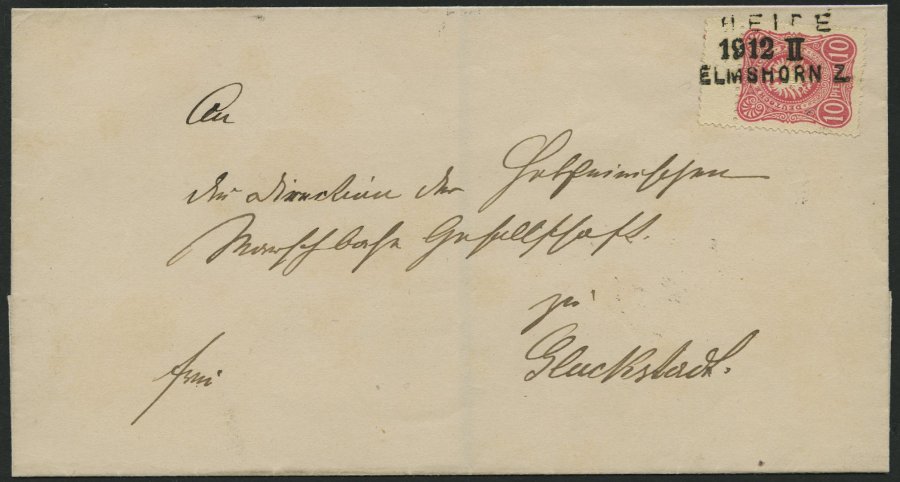 HEIDE
1912 II
ELMSHORN Z.
10
10
An
die Direction der Holsteinischen
Marschbahn Gesellschaft.
zu
Glückstadt.
frei